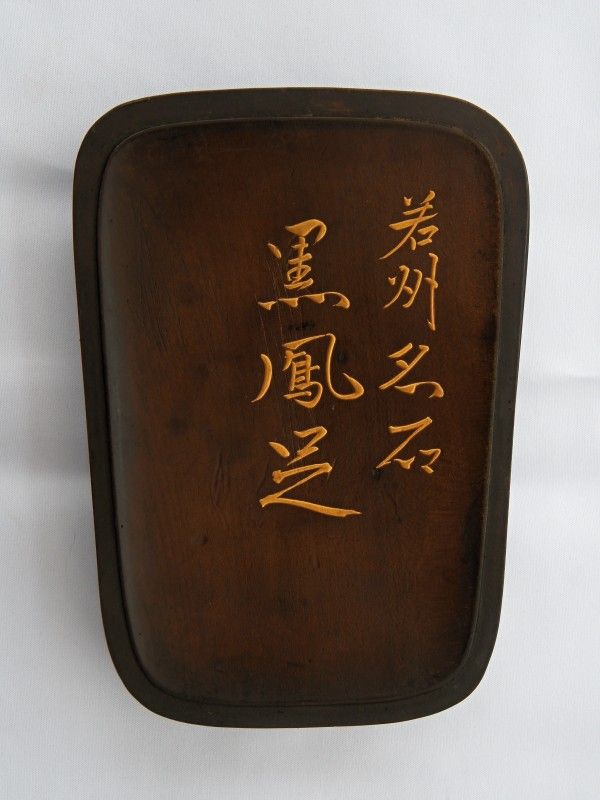 若州名石
黒鳳足